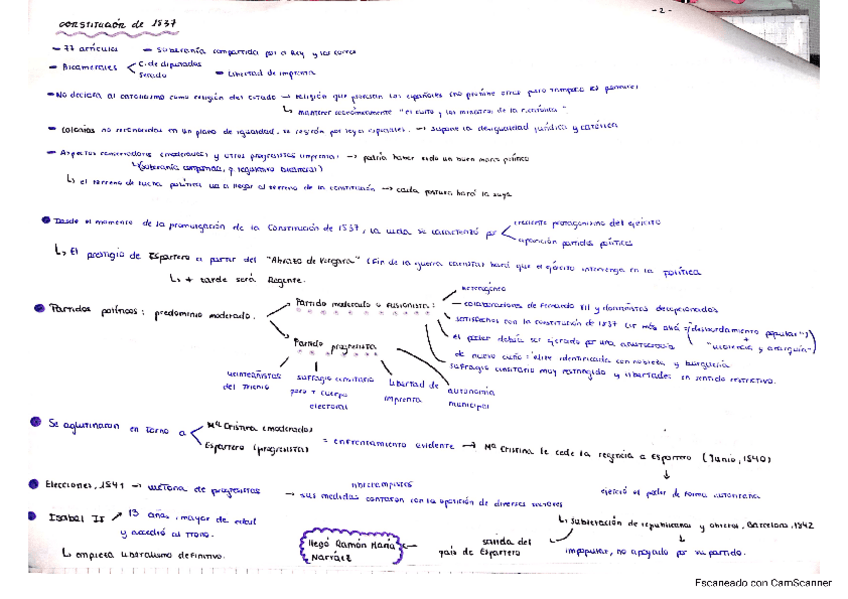 - 2 -
Constitución de 1837
- 77 artículos - Soberanía compartida por el Rey y las cortes
- Bicamerales C. de diputados
Senado - Libertad de imprenta
- No declara al catolicismo como religión del estado → religión que profesan los españoles (no prohíbe otras pero tampoco las permite)
↳ mantener económicamente "el culto y los ministros de la
- Colonias no reconocidas en un plano de igualdad, se regirán por leyes especiales. → supone la desigualdad jurídica y
- Aspectos conservadores (moderados) y otros progresistas → podría haber sido un buen marco político
↳ (soberanía compartida,
↳ el terreno de lucha política va a llegar al terreno de la constitución → cada partido hará la suya
Desde el momento de la promulgación de la Constitución de 1837, la lucha se caracterizó por creciente protagonismo del ejército
aparición partidos políticos
↳ El prestigio de Espartero a partir del "Abrazo de Vergara" (Fin de la guerra carlista) hará que el ejército intervenga en la política
↳ + tarde será Regente.
Partidos políticos: predominio moderado. Partido moderado o :
heterogéneo
- colaboradores de Fernando VII y decepcionados
satisfechos con la constitución de 1837 (ir más allá "desbordamiento popular")
"violencia y anarquía"
el poder debía ser ejercido por una aristocracia
de nuevo cuño: élite identificada con nobleza y burguesía
sufragio censitario muy restringido y libertades en sentido restrictivo.
Partido progresista
del Trienio
sufragio censitario
pero + cuerpo
electoral
libertad de
imprenta
autonomía
municipal
Se aglutinaron en torno a Mª Cristina (moderados)
Espartero (progresistas) = enfrentamiento evidente → Mª Cristina le cede la regencia a Espartero (Junio, 1840)
ejerció el poder de forma autoritaria
Elecciones, 1841 → victoria de progresistas → sus medidas contaron con la oposición de diversos sectores
librecambistas
↳ sublevación de republicanos y obreros, Barcelona, 1842
impopular, no apoyado por su partido.
salida del
país de Espartero
llegó Ramón María
Narváez
Isabel II 13 años, mayor de edad
y accedió al trono.
↳ empieza liberalismo definitivo.
Escaneado con CamScanner